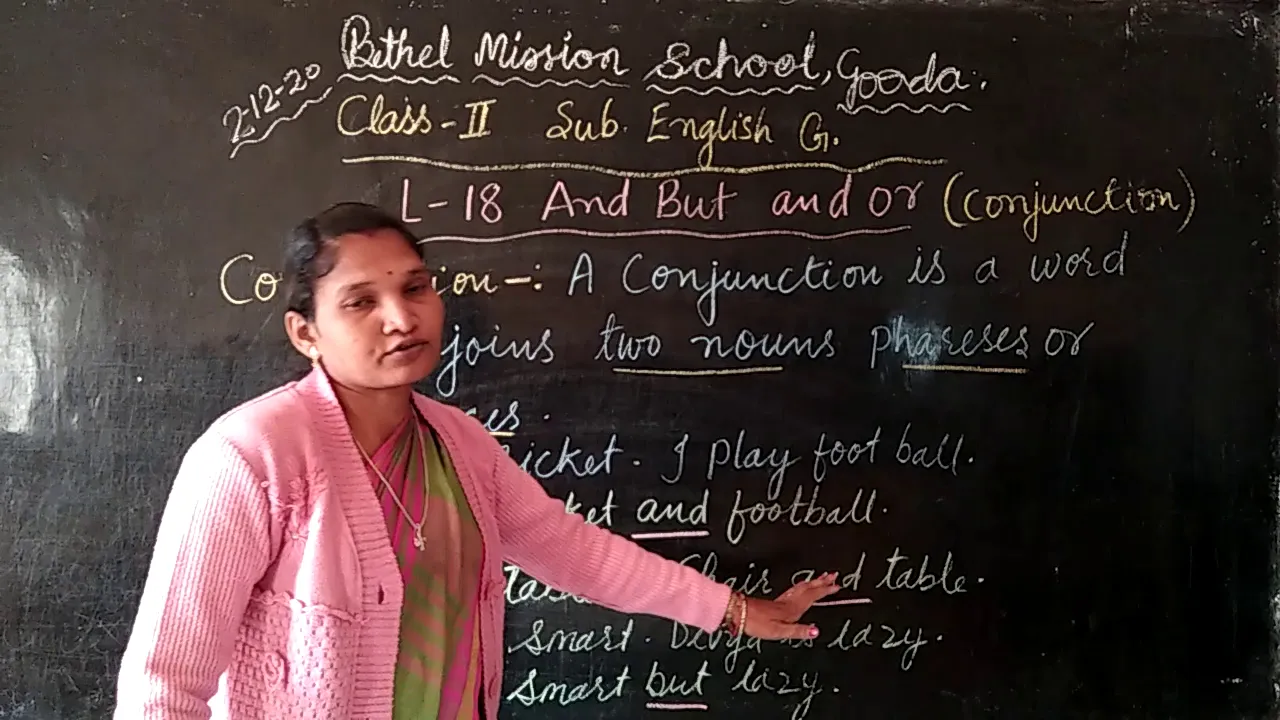 Bethel Mission School, Gooda.
2-12-20
Class-II Sub. English G.
L-18 And But and or (Conjunction)
Co ion-: A Conjunction is a word
joins two nouns phareses or
ces.
icket. I play foot ball.
ket and football.
Chair and table.
smart. Divya is lazy.
smart but lazy.